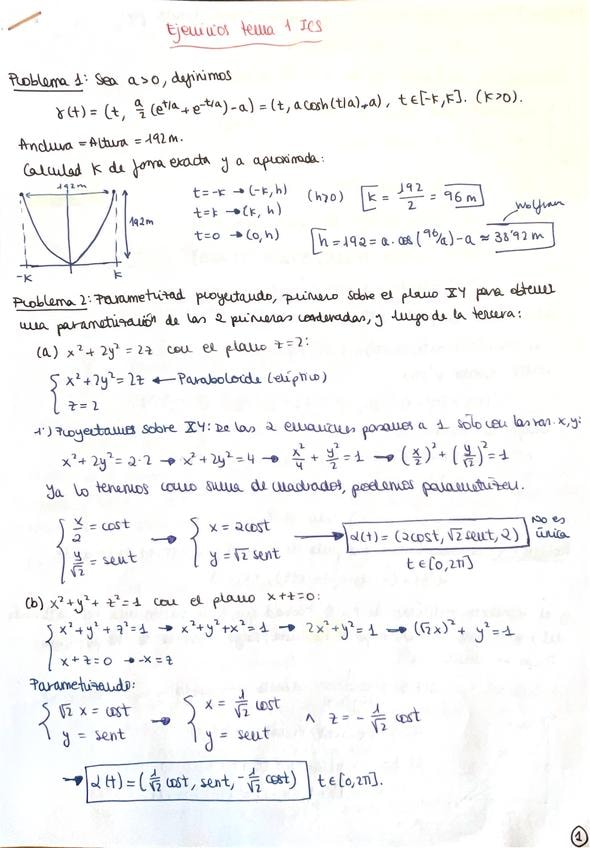 Ejercicios tema 1 ICS
Problema 1: Sea a>0, definimos
γ(t) = (t, a/2 (e^{t/a} + e^{-t/a}) - a) = (t, a cosh(t/a) + a), t∈[-K,K]. (K>0).
Anchura = Altura = 192 m.
Calculad K de forma exacta y a aproximada:
192m
192m
-K K
t=-K → (-K, h)
t=K → (K, h)
t=0 → (0, h)
(h>0) K = 192/2 = 96 m
Wolfram
h = 192 = a · cos(96/a) - a ≈ 38'92 m
Problema 2: Parametrizad proyectando, primero sobre el plano XY para obtener
una parametrización de las 2 primeras coordenadas, y luego de la tercera:
(a) x² + 2y² = 2z con el plano z = 2:
{ x² + 2y² = 2z ← Paraboloide (elíptico)
z = 2
1º) Proyectamos sobre XY: De las 2 ecuaciones pasamos a 1 sólo con las var. x, y:
x² + 2y² = 2·2 → x² + 2y² = 4 → x²/4 + y²/2 = 1 → (x/2)² + (y/√2)² = 1
Ya lo tenemos como suma de cuadrados, podemos parametrizar.
{ x/2 = cost → { x = 2cost → α(t) = (2cost, √2 sent, 2) No es única
y/√2 = sent y = √2 sent t∈[0,2π]
(b) x² + y² + z² = 1 con el plano x+z=0:
{ x² + y² + z² = 1 → x² + y² + x² = 1 → 2x² + y² = 1 → (√2x)² + y² = 1
x + z = 0 → -x = z
Parametrizando:
{ √2 x = cost → { x = 1/√2 cost ∧ z = - 1/√2 cost
y = sent y = sent
→ α(t) = (1/√2 cost, sent, -1/√2 cost) t∈[0,2π].
1